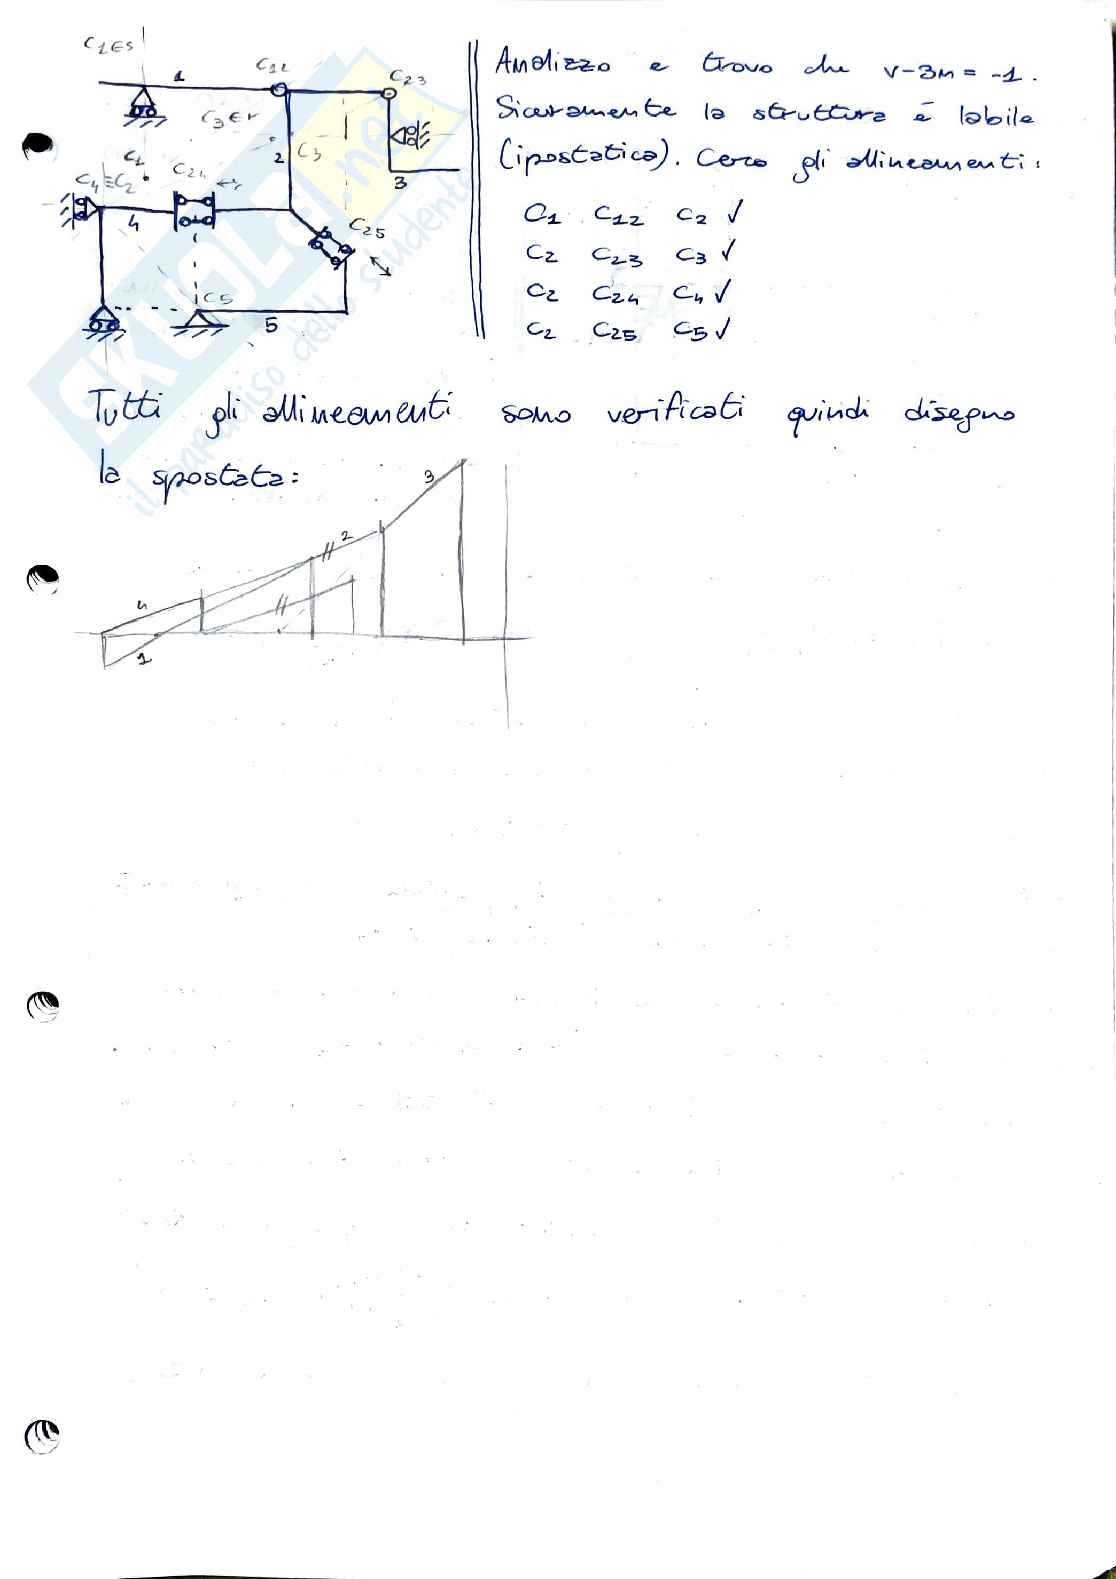 C1∈s
1
C12
C23
C3∈r
2
C3
3
C1
C4≡C2
C24
4
C25
C5
5
Analizzo e trovo che v-3m = -1.
Sicuramente la struttura è labile
(ipostatica). Cerco gli allineamenti:
C1 C12 C2 ✓
C2 C23 C3 ✓
C2 C24 C4 ✓
C2 C25 C5 ✓
Tutti gli allineamenti sono verificati quindi disegno
la spostata:
3
2
4
1
SKUOLA.net
il paradiso dello studente